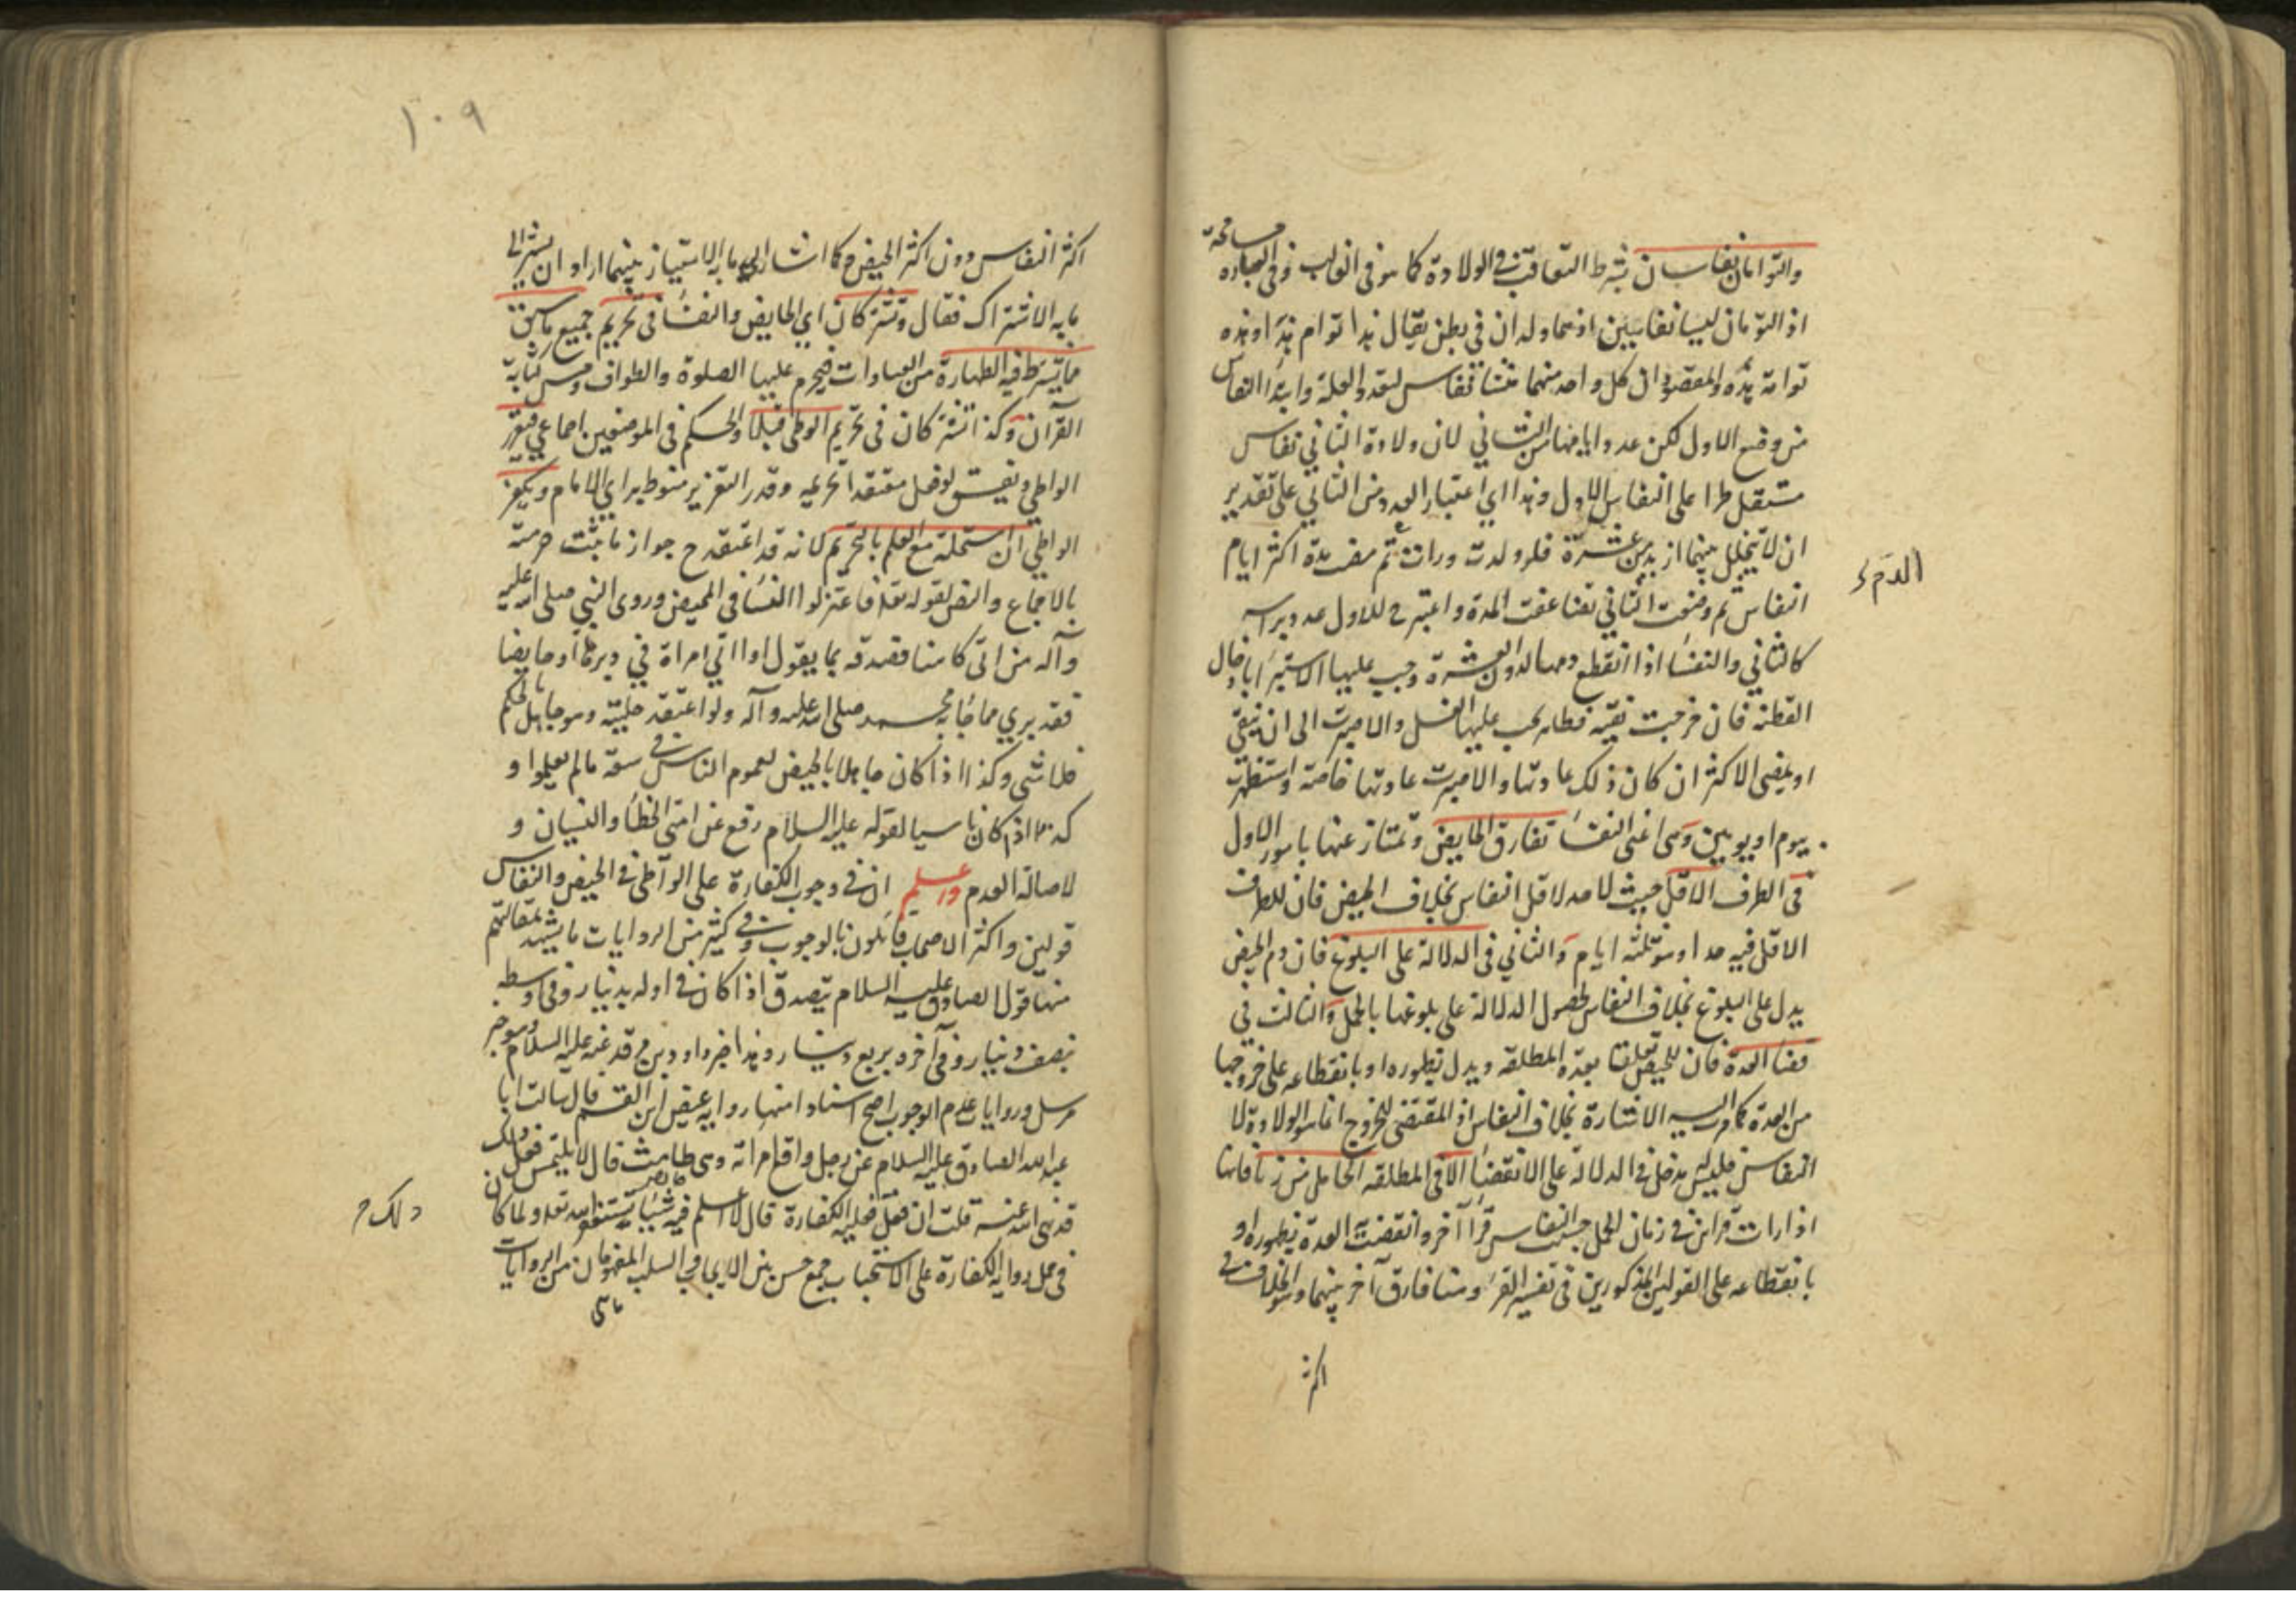 والتوامان نفاسان بشرط التعاقب في الولادة كما هو في الغالب وفي العبارة مسامحة
اذ التوءمان ليسا نفاسين اذ هما ولدان في بطن يقال هذا توام هذا وهذه
توامة هذه والمقصود ان كل واحد منهما منشا نفاس لتعدد العلة وابتدا النفاس
من وضع الاول لكن عدد ايامها من الثاني لان ولادة الثاني نفاس
مستقل طرا على النفاس الاول وهذا اي اعتبار العدد من الثاني على تقدير
ان لا يتخلل بينهما ازيد من عشرة فلو ولدت ورات ثم مضت مدة اكثر ايام
الدم
النفاس ثم وضعت الثاني تضاعفت المدة واعتبر ح للاول عدد براسه
كالثاني والنفسا اذا انقطع دمها لدون العشرة وجب عليها الاستبرا بادخال
القطنة فان خرجت نقية فطاهر يجب عليها الغسل والا صبرت الى ان تنقى
او يمضى الاكثر ان كان ذلك عادتها والا صبرت عادتها خاصة واستظهرت
بيوم او يومين وهى اعنى النفسا تفارق الحايض وتمتاز عنها بامور الاول
في الطرف الاقل حيث لا حد لاقل النفاس بخلاف الحيض فان للطرف
الاقل فيه حدا وهو ثلثة ايام والثاني في الدلالة على البلوغ فان دم الحيض
يدل على البلوغ بخلاف النفاس لحصول الدلالة على بلوغها بالحمل والثالث في
قضا العدة فان للحيض تعلقا بعدة المطلقة ويدل بظهوره او بانقطاعه على خروجها
من العدة كما مر اليه الاشارة بخلاف النفاس اذ المقتضى للخروج انما هو الولادة لا
النفاس فليس له مدخل في الدلالة على الانقضا الا في المطلقة الحامل من زنا فانها
اذا رات قراين في زمان الحمل حسب النفاس قرا آخر وانقضت العدة بظهوره او
بانقطاعه على القولين المذكورين في تفسير القرء وهنا فارق آخر بينهما وهو الخلاف في
اكثر
١٠٩
اكثر النفاس دون اكثر الحيض وكما اشار الى ما به الامتياز بينهما اراد ان يشير الى
ما به الاشتراك فقال وتشتركان اي الحايض والنفسا في تحريم جميع ما سبق
مما يشترط فيه الطهارة من العبادات فيحرم عليها الصلوة والطواف ومس كتابة
القرآن وكذا تشتركان في تحريم الوطى قبلا والحكم في الموضعين اجماعي فيعزر
الواطي ويفسق لو فعل معتقدا تحريمه وقدر التعزير منوط براي الامام ويكفر
الواطي ان استحله مع العلم بالتحريم لانه قد اعتقد ح جواز ما يثبت حرمته
بالاجماع والنص لقوله تعالى فاعتزلوا النسا في المحيض وروى النبي صلى الله عليه
وآله من اتى كاهنا فصدقه بما يقول او اتي امراة في دبرها او حايضا
فقد بري مما جا به محمد صلى الله عليه وآله ولو اعتقد حليته وهو جاهل بالحكم
فلا شي وكذا اذا كان جاهلا بالحيض لعموم الناس في سعة ما لم يعلموا و
كذا اذا كان ناسيا لقوله عليه السلام رفع عن امتى الخطأ والنسيان و
لاصالة العدم واعلم ان في وجوب الكفارة على الواطى في الحيض والنفاس
قولين واكثر الاصحاب قائلون بالوجوب وفي كثير من الروايات ما يشهد بمقالتهم
منها قول الصادق عليه السلام يتصدق اذا كان في اوله بدينار وفي وسطه
بنصف دينار وفي آخره بربع دينار وهذا خبر داود بن فرقد عنه عليه السلام وهو خبر
مرسل وروايات عدم الوجوب اصح اسنادا منها رواية عيص ابن القسم قال سالت ابا
عبد الله الصادق عليه السلام عن رجل واقع امراته وهى طامث قال لا يلتمس فعل ذلك
قد نهى الله عنه قلت ان فعل فعليه الكفارة قال لا اعلم فيه شيئا يستغفر الله تعالى ولما كان
ذلك
في حمل رواية الكفارة على الاستحباب جمع حسن بين الايجاب والسلب المفهومان من الروايات